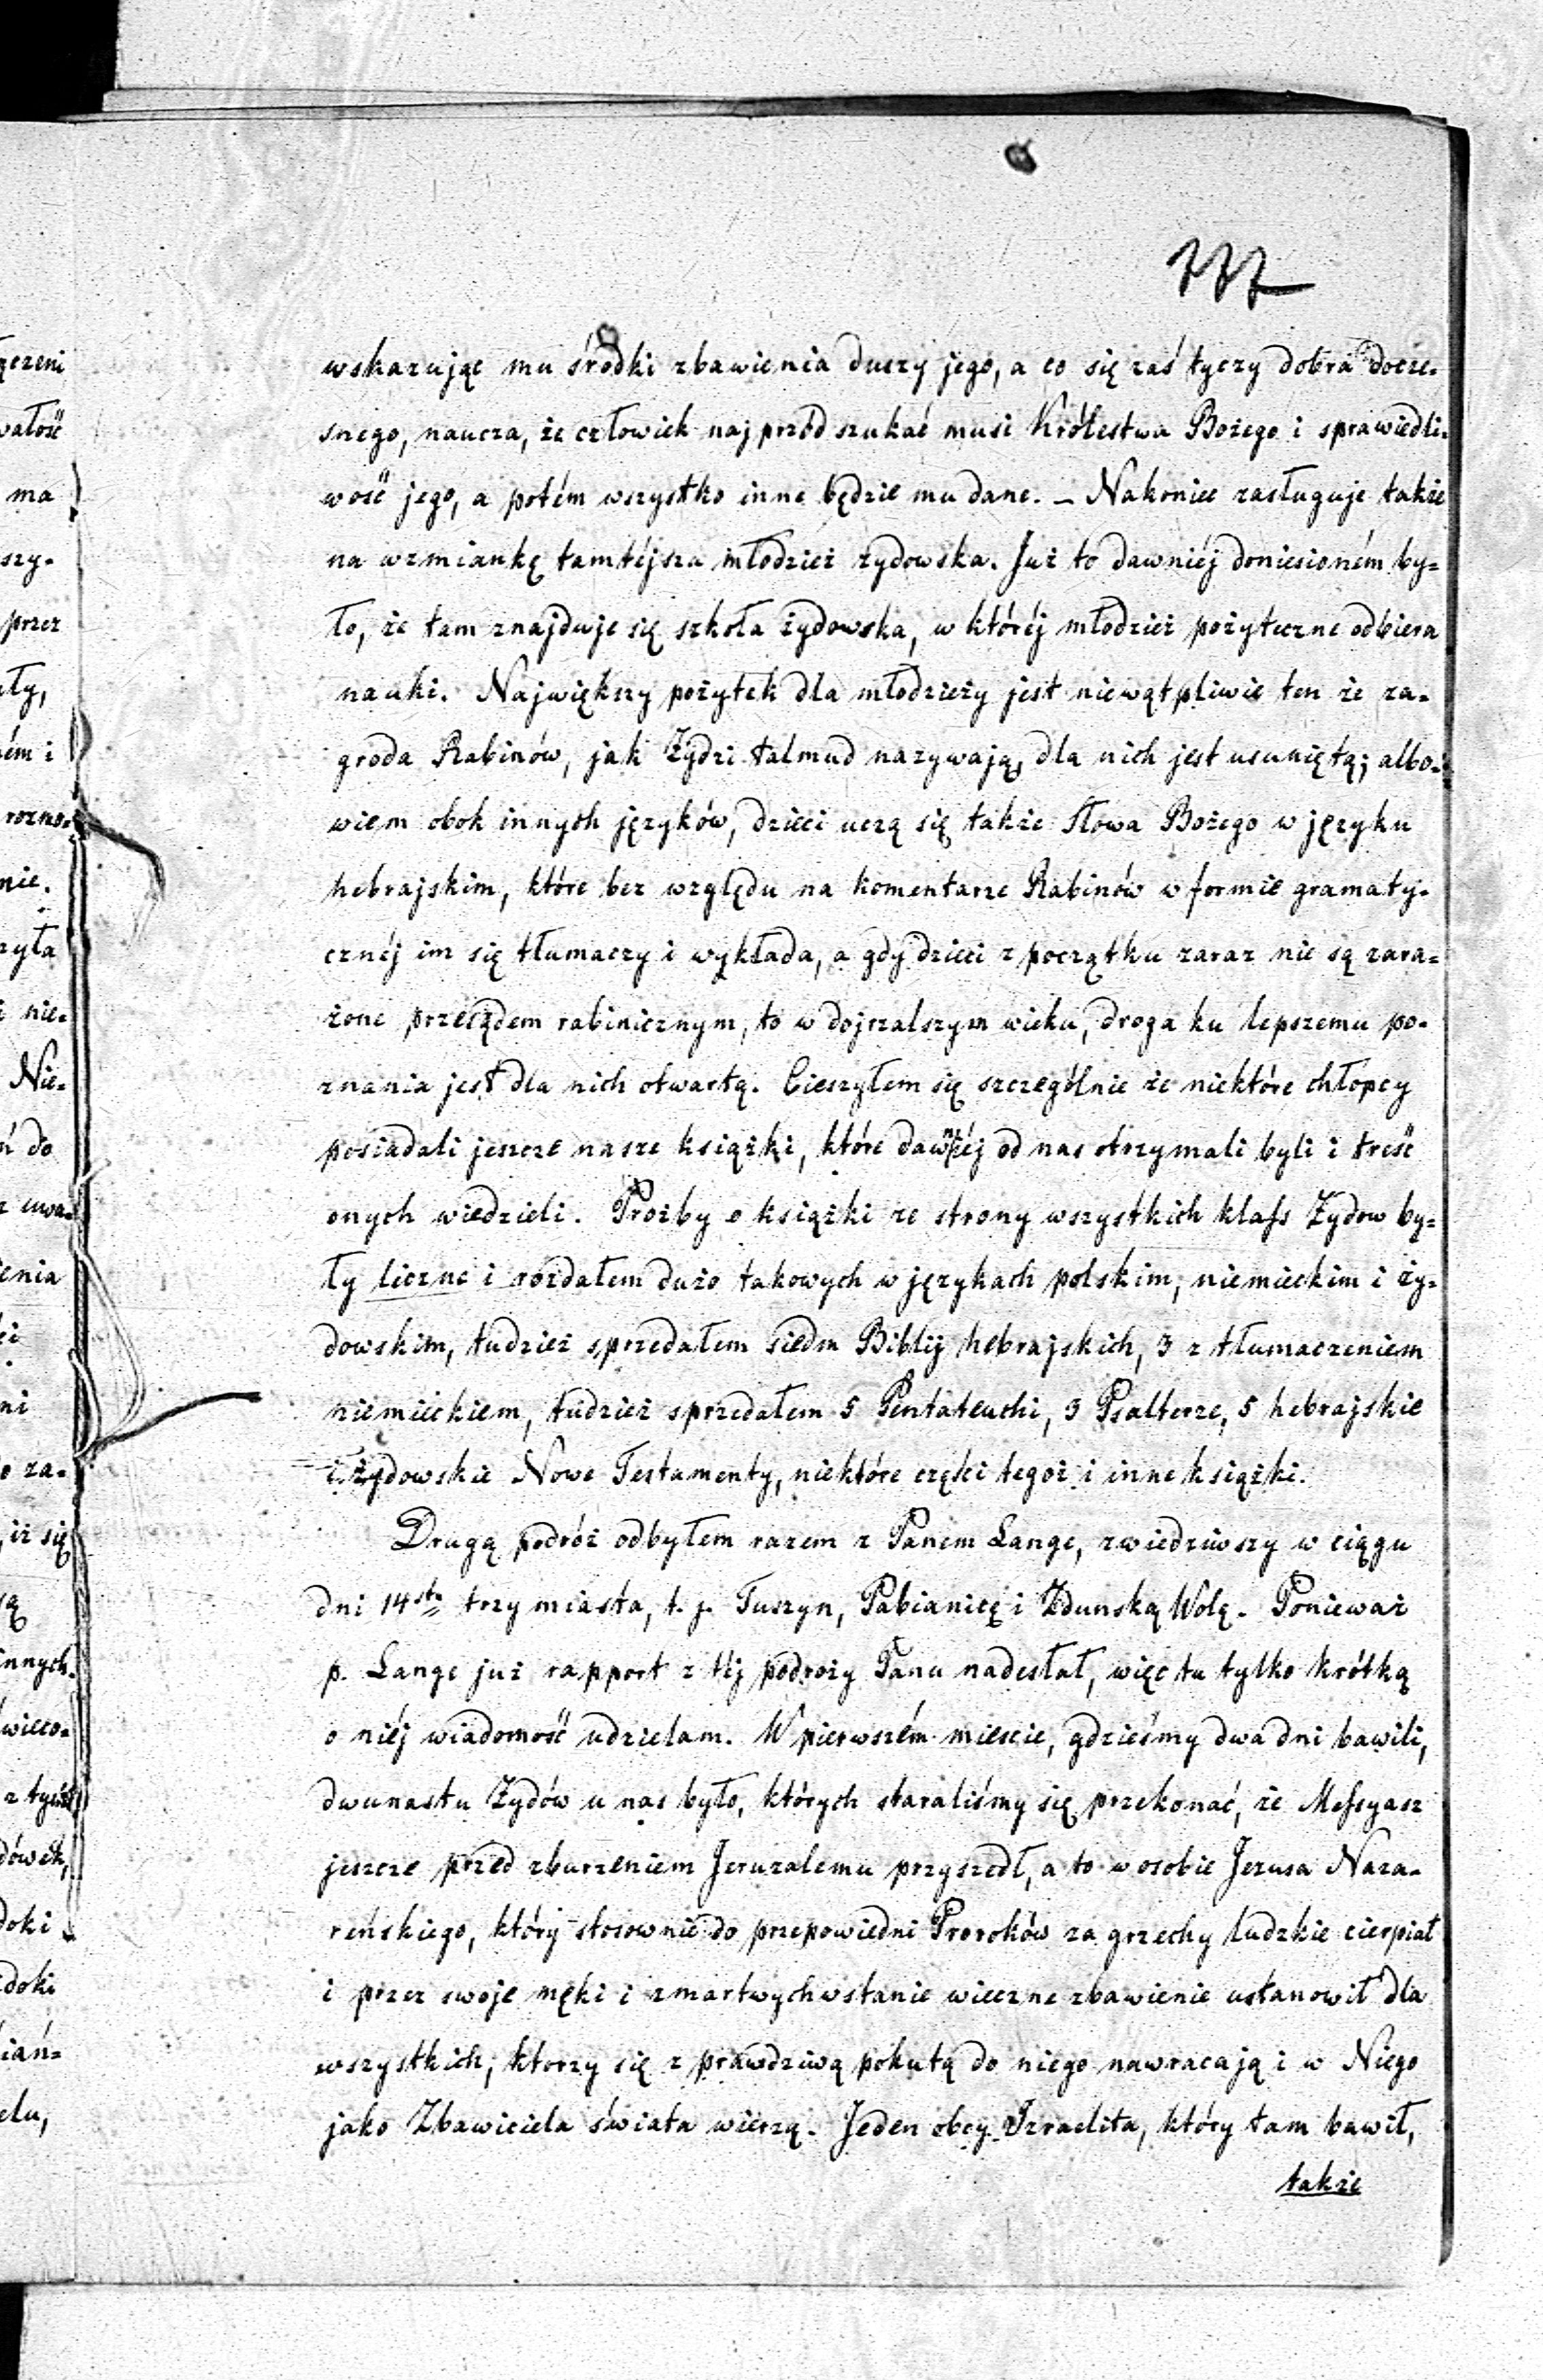 777
wskazując mu śródki zbawienia duszy jego, a co się zaś tyczy dobra docze-
snego, naucza, że człowiek najprzód szukać musi Królestwa Bożego i sprawiedli-
wość jego, a potém wszystko inne będzie mu dane. – Nakoniec zasługuje także
na wzmiankę tamtéjsza młodzież żydowska. Już to dawniéj doniesioném by-
ło, że tam znajduje się szkoła żydowska, w któréj młodzież pożyteczne odbiera
nauki. Największy pożytek dla młodzieży jest niewątpliwie ten że za-
groda Rabinów, jak Żydzi talmud nazywają, dla nich jest usuniętą; albo-
wiem obok innych języków, dzieci uczą się także Słowa Bożego w języku
hebrajskim, które bez względu na komentarze Rabinów w formie gramaty-
cznéj im się tłumaczy i wykłada, a gdy dzieci z początku zaraz nie są zara-
żone przesądem rabinicznym, to w dojrzalszym wieku, droga ku lepszemu po-
znania jest dla nich otwartą. Cieszyłem się szczególnie że niektóre chłopcy
posiadali jeszcze nasze książki, które dawniéj od nas otrzymali byli i treść
onych wiedzieli. Prożby o książki ze strony wszystkich klass Żydow by-
ły liczne i rozdałem dużo takowych w językach polskim, niemieckim i ży-
dowskim, tudzież sprzedałem siedm Biblij hebrajskich, 3 z tłumaczeniem
niemieckiem, tudzież sprzedałem 5 Pentateuchi, 3 Psalterze, 5 hebrajskie
i żydowskie Nowe Testamenty, niektóre części tegoż i inne książki.
Drugą podróż odbyłem razem z Panem Lange, zwiedziwszy w ciągu
dni 14stu trzy miasta, t. j. Tuszyn, Pabianicę i Zduńską Wolę. Ponieważ
p. Lange już rapport z téj podroży Panu nadesłał, więc tu tylko krótką
o niéj wiadomość udzielam. W pierwszém miescie, gdzieśmy dwa dni bawili,
dwunastu Żydów u nas było, których staraliśmy się przekonać, że Messyasz
jeszcze przed zburzeniem Jeruzalemu przyszedł, a to w osobie Jezusa Naza-
reńskiego, który stosownie do przepowiedni Proroków za grzechy ludzkie cierpiał
i przez swoje męki i zmartwychwstanie wieczne zbawienie ustanowił dla
wszystkich, ktorzy się z prawdziwą pokutą do niego nawracają i w Niego
jako Zbawiciela świata wierzą. Jeden obcy Izraelita, który tam bawił,
także